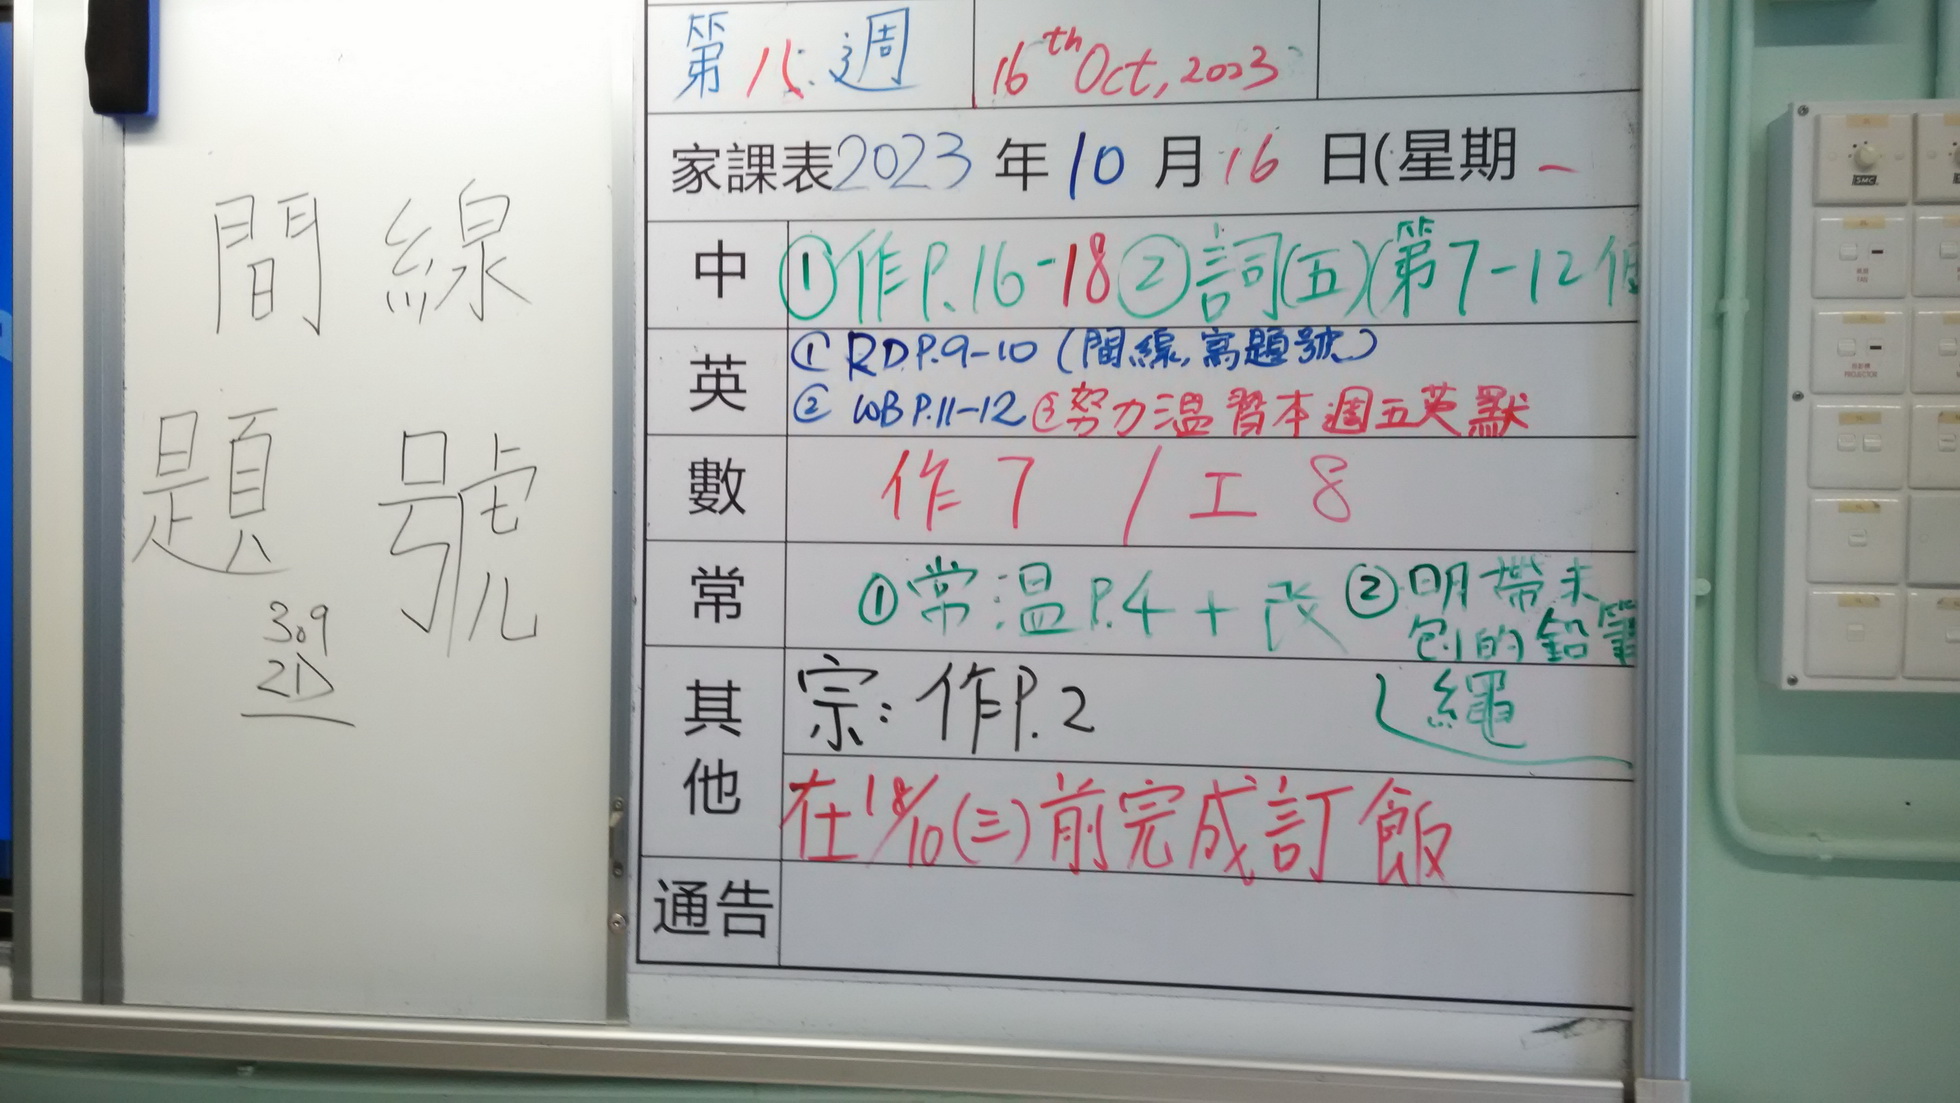 間線
題號
309
第 週
16th Oct, 2023
家課表2023 年 10 月 16 日(星期 一
中
①作P.16-18②詞(五)(第7-12個
英
① RD P.9-10 (間線,寫題號)
② WB P.11-12 ③努力溫習本週五英默
數
作7 / 工8
常
①常溫P.4+改 ②明帶未
刨的鉛筆
繩
其他
宗:作P.2
在18/10(三)前完成訂飯
通告
SMC
FAN
PROJECTOR